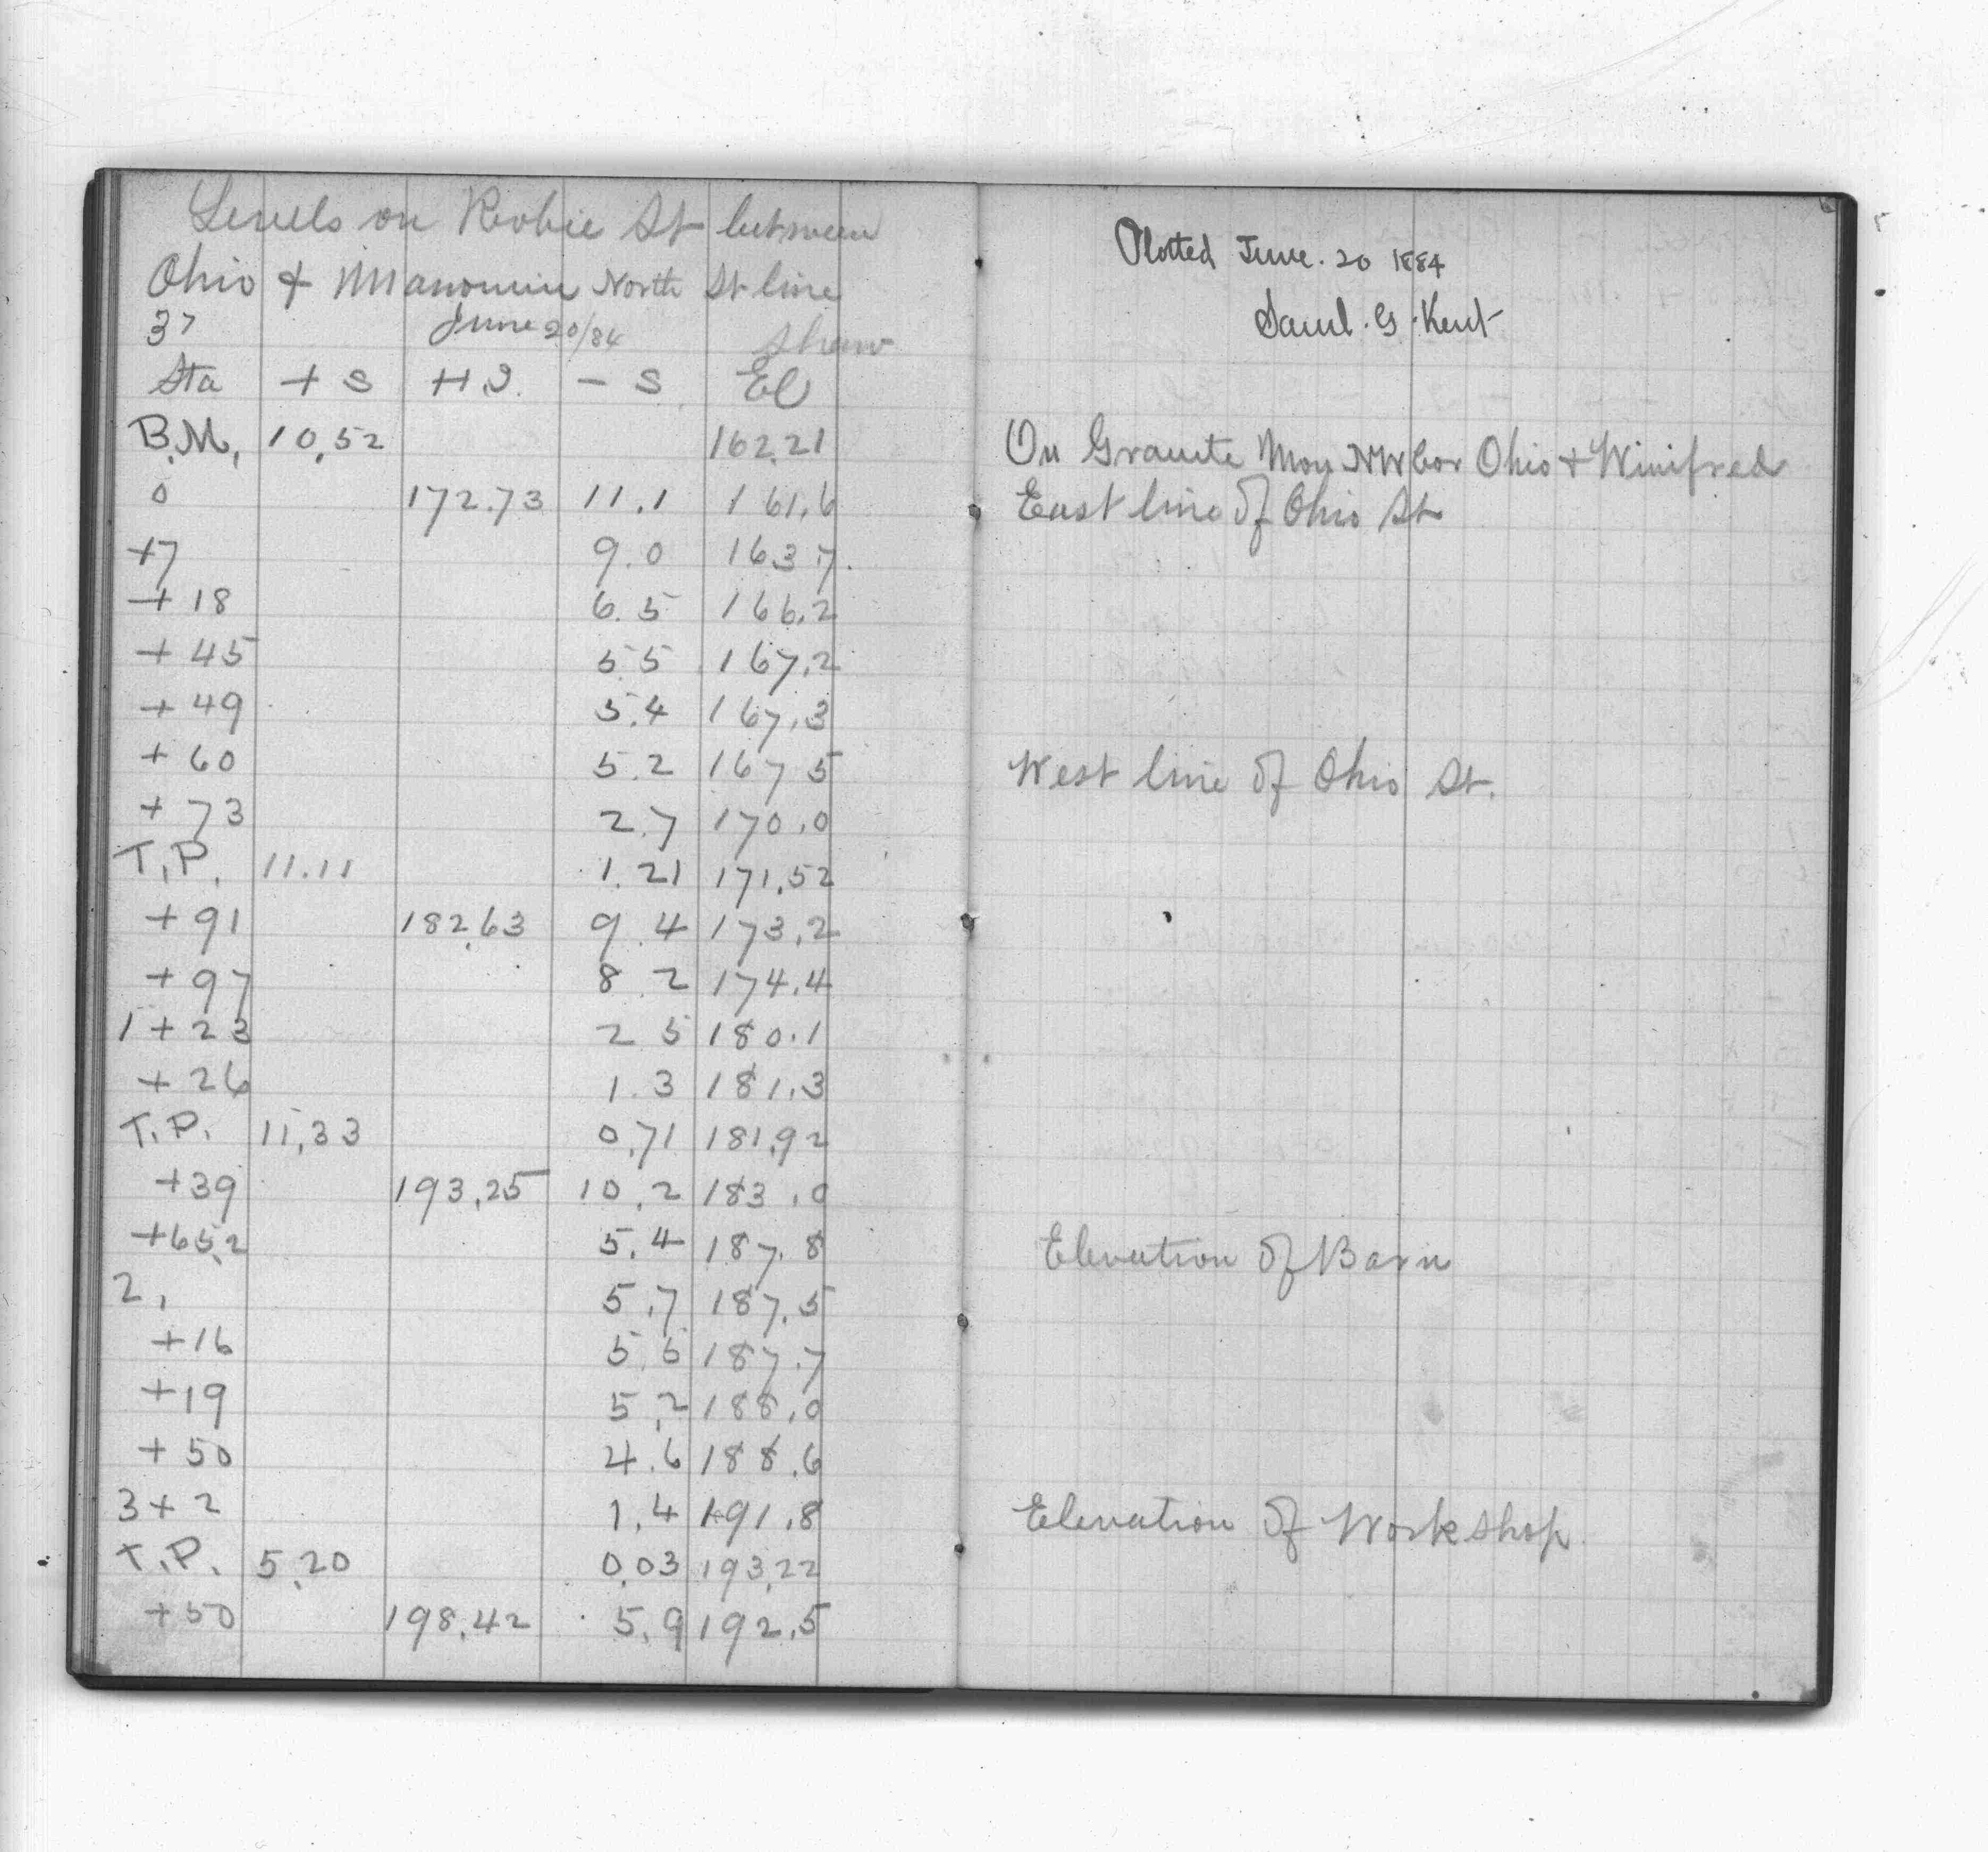 Levels on Robie St between
Ohio & Manomin North St line
37 June 20/84 Shaw
Sta + S H.I. - S El
B.M. 10.52 162.21
0 172.73 11.1 161.6
+7 9.0 163.7
+18 6.5 166.2
+45 5.5 167.2
+49 5.4 167.3
+60 5.2 167 5
+73 2.7 170.0
T.P. 11.11 1.21 171.52
+91 182.63 9.4 173.2
+97 8.2 174.4
1+23 2 5 180.1
+26 1.3 181.3
T.P. 11.33 0.71 181.92
+39 193.25 10.2 183.0
+65.2 5.4 187.8
2. 5.7 187.5
+16 5.5 187.7
+19 5.2 188.0
+50 4.6 188.6
3+2 1.4 191.8
T.P. 5.20 0.03 193.22
+50 198.42 5.9 192.5
Plotted June. 20 1884
Saml. G. Kent
On Granite Mon NW Cor Ohio + Winifred
East line of Ohio St
West line of Ohio St.
Elevation of Barn
Elevation of Workshop